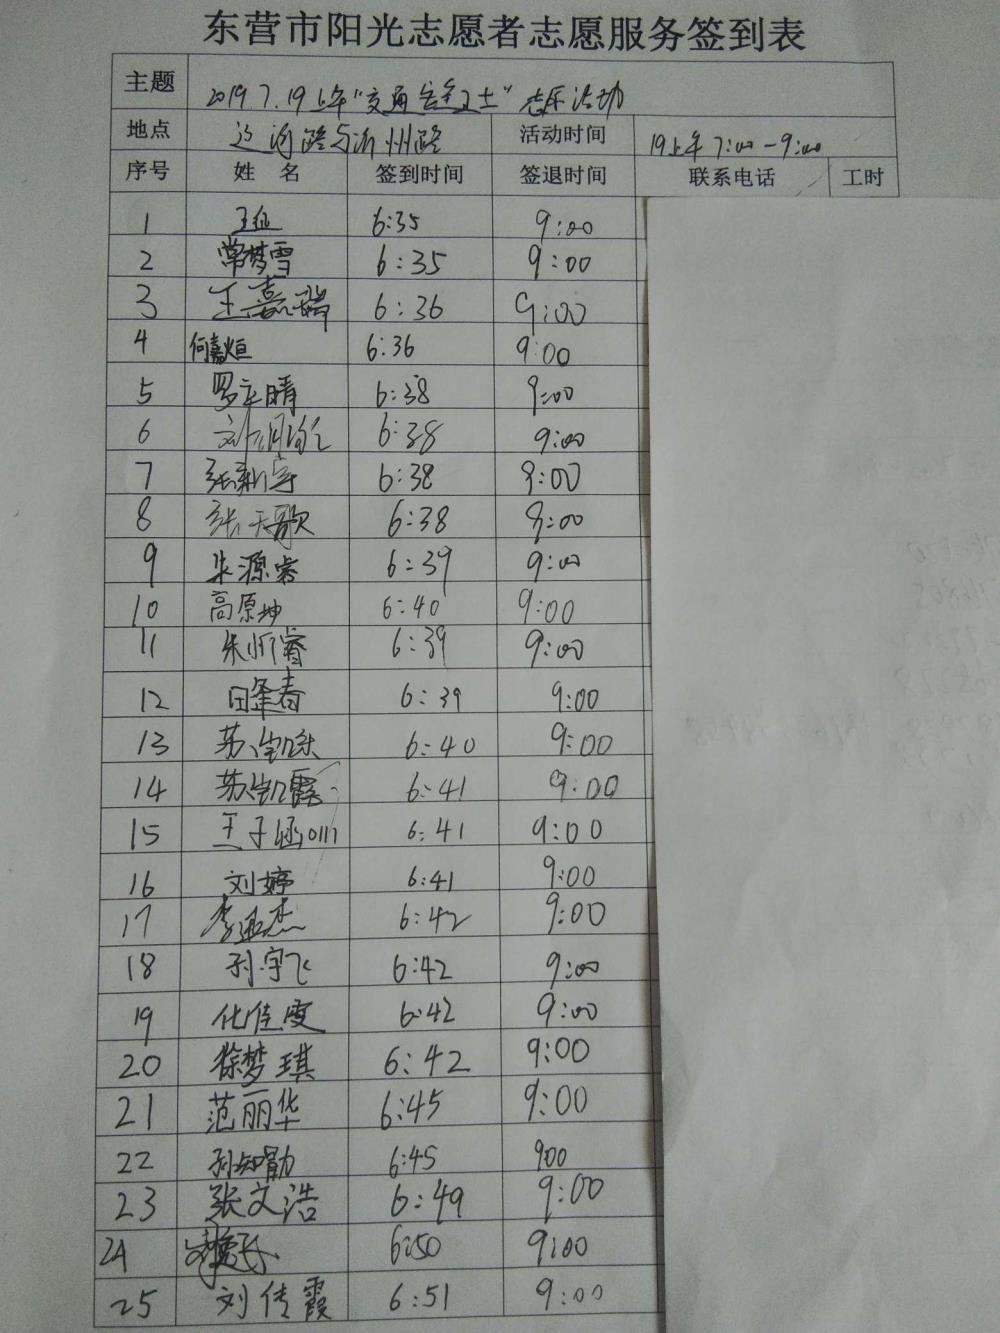 东营市阳光志愿者志愿服务签到表
主题 2019.7.19上午"交通安全卫士"志愿活动
地点 路与 州路 活动时间 19上午7:00-9:00
序号 姓 名 签到时间 签退时间 联系电话 工时
1 王征 6:35 9:00
2 常梦雪 6:35 9:00
3 王嘉瑞 6:36 9:00
4 何嘉烜 6:36 9:00
5 罗立晴 6:38 9:00
6 6:38 9:00
7 张新宇 6:38 9:00
8 张天歌 6:38 9:00
9 朱源睿 6:39 9:00
10 高原坤 6:40 9:00
11 朱昕睿 6:39 9:00
12 田逢春 6:39 9:00
13 苏凯乐 6:40 9:00
14 苏凯霞 6:41 9:00
15 王子涵0111 6:41 9:00
16 刘婷 6:41 9:00
17 李 杰 6:42 9:00
18 孙宇飞 6:42 9:00
19 化佳雯 6:42 9:00
20 徐梦琪 6:42 9:00
21 范丽华 6:45 9:00
22 孙 6:45 900
23 张文浩 6:49 9:00
24 6:50 9:00
25 刘传霞 6:51 9:00